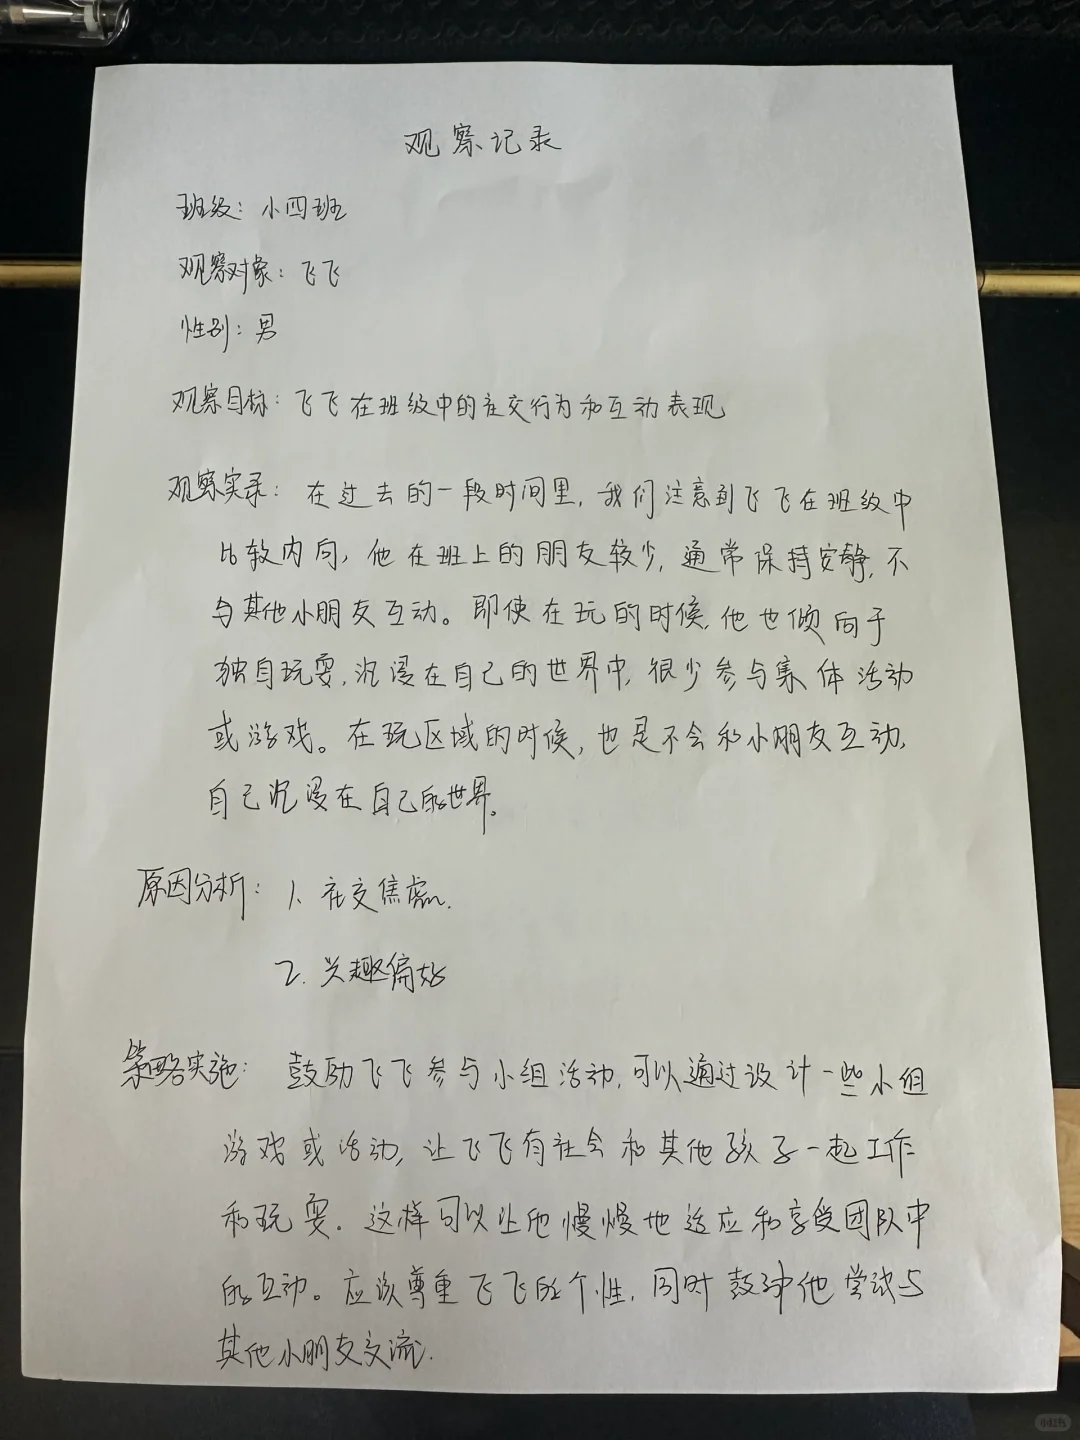 观察记录
班级：小四班
观察对象：飞飞
性别：男
观察目标：飞飞在班级中的社交行为和互动表现
观察实录：在过去的一段时间里，我们注意到飞飞在班级中
比较内向，他在班上的朋友较少，通常保持安静，不
与其他小朋友互动。即使在玩的时候，他也倾向于
独自玩耍，沉浸在自己的世界中，很少参与集体活动
或游戏。在玩区域的时候，也是不会和小朋友互动，
自己沉浸在自己的世界。
原因分析：1、社交焦虑.
2. 兴趣偏好
策略实施：鼓励飞飞参与小组活动，可以通过设计一些小组
游戏或活动，让飞飞有社会和其他孩子一起工作
和玩耍. 这样可以让他慢慢地适应和享受团队中
的互动。应该尊重飞飞的个性，同时鼓励他尝试与
其他小朋友交流.
小红书